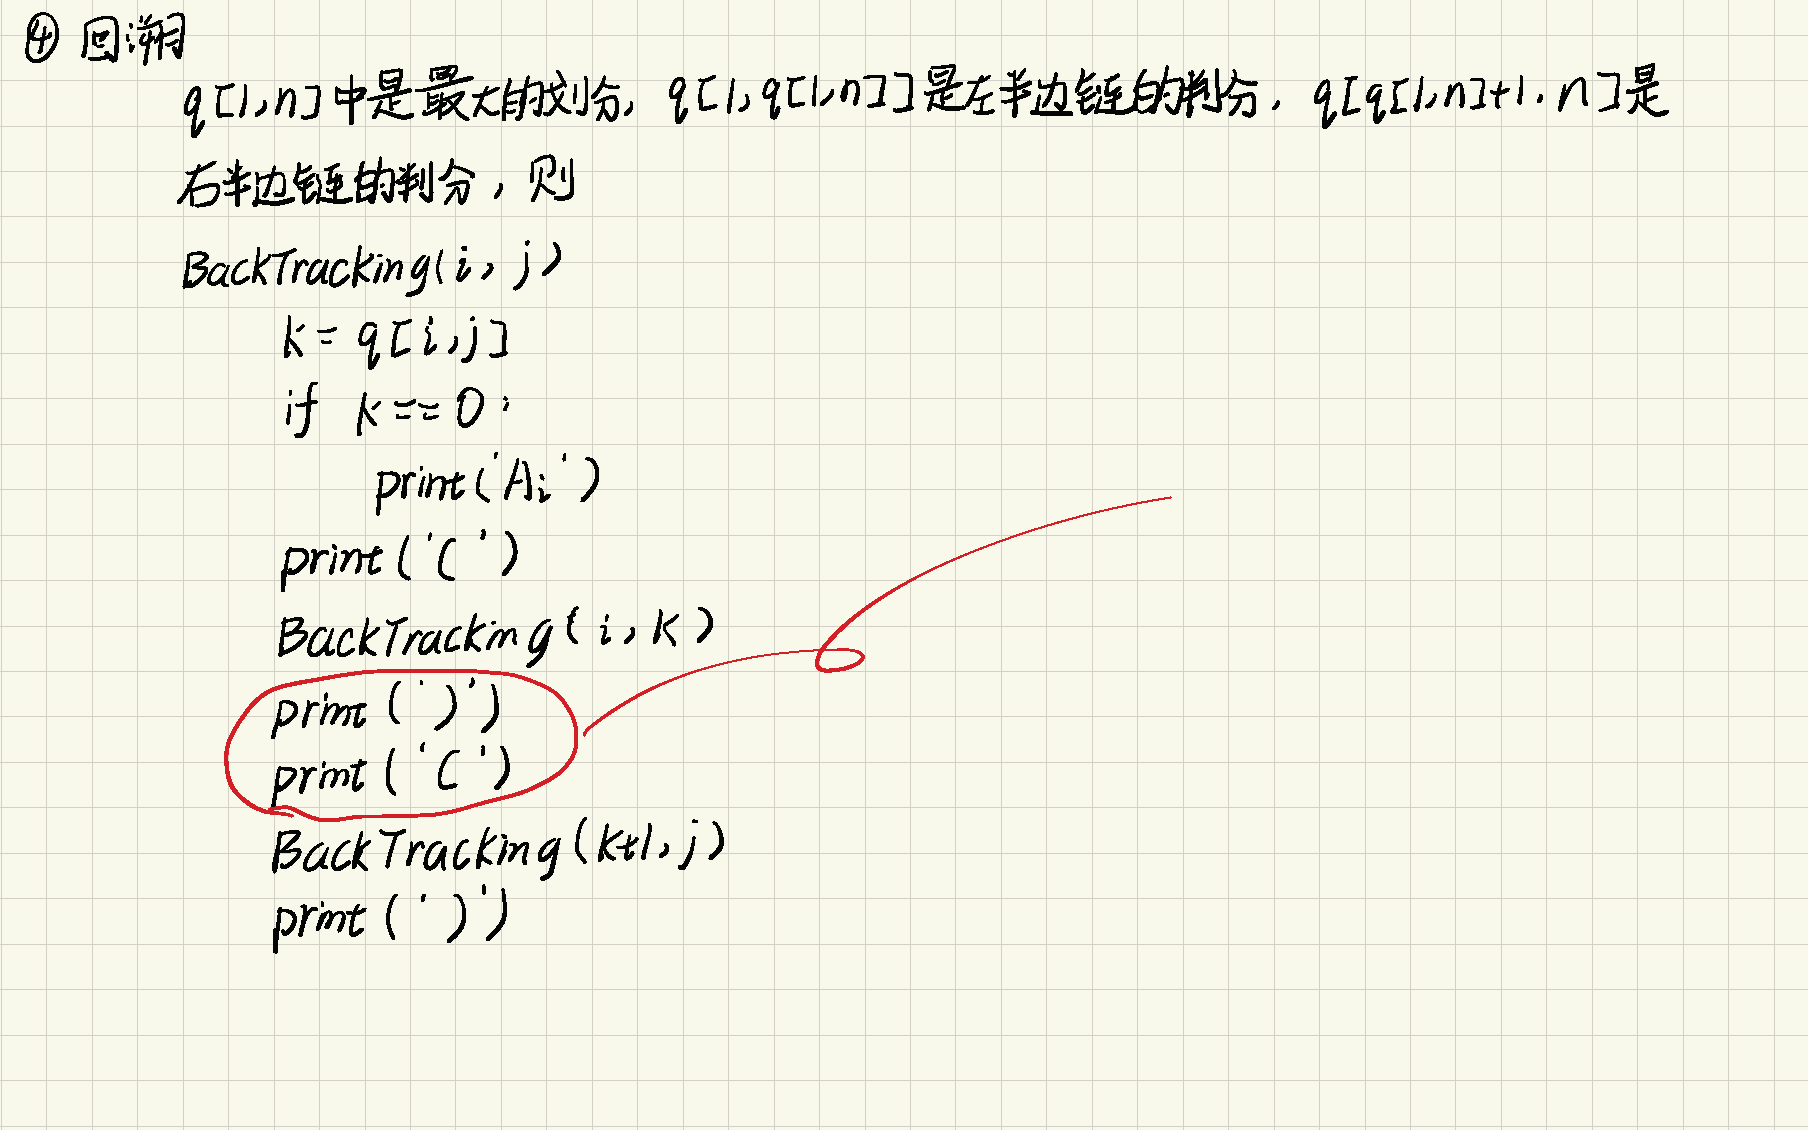 ④ 回溯
q[1,n]中是最大的划分, q[1,q[1,n]]是左半边链的判分, q[q[1,n]+1, n]是
右半边链的判分, 则
BackTracking(i, j)
k = q[i,j]
if k == 0:
print('Ai')
print('(')
BackTracking(i, k)
print(')')
print('(')
BackTracking(k+1, j)
print(')')